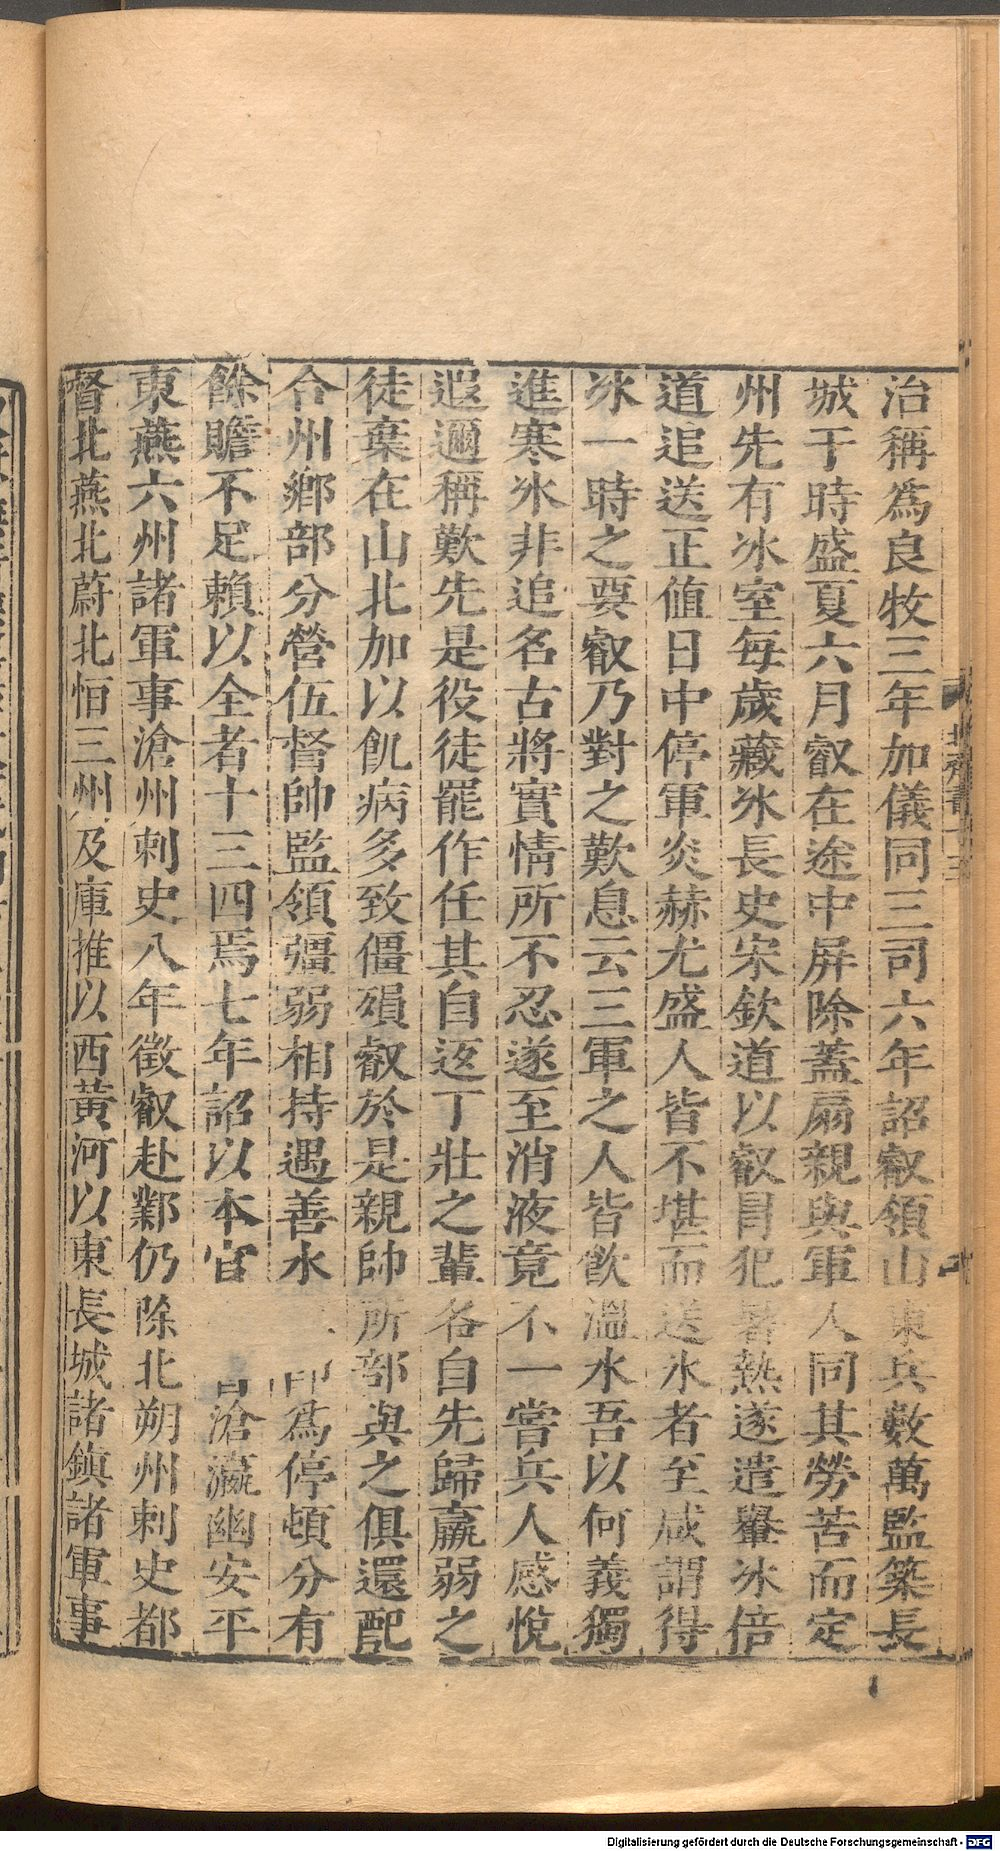 治稱爲良牧三年加儀同三司六年詔叡領山東兵數萬監築長
城于時盛夏六月叡在途中屏除蓋扇親與軍人同其勞苦而定
州先有冰室每歲藏冰長史宋欽道以叡冒犯暑熱遂遣轝冰倍
道追送正值日中停軍炎赫尤盛人皆不堪而送冰者至咸謂得
冰一時之要叡乃對之歎息云三軍之人皆飲溫水吾以何義獨
進寒冰非追名古將實情所不忍遂至消液竟不一嘗兵人感悅
遐邇稱歎先是役徒罷作任其自返丁壯之輩各自先歸羸弱之
徒棄在山北加以飢病多致僵殞叡於是親帥所部與之俱還配
合州鄉部分營伍督帥監領彊弱相持遇善水爲停頓分有
餘贍不足賴以全者十三四焉七年詔以本官滄瀛幽安平
東燕六州諸軍事滄州刺史八年徵叡赴鄴仍除北朔州刺史都
督北燕北蔚北恒三州及庫推以西黃河以東長城諸鎮諸軍事
北齊書十三
Digitalisierung gefördert durch die Deutsche Forschungsgemeinschaft - DFG